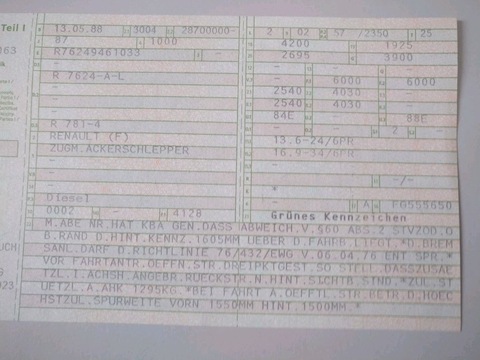 Teil I
13.05.88 3004 28700000-
2 02 57 /2350 25
163
87 1000
4200 1925
R76249461033 -
2695 3900
R 7624-A-L
- 6000 6000
2540 4030 -
2540 4030 -
84E - 88E
R 781-4
- 2 -
RENAULT (F)
13.6-24/6PR
ZUGM.ACKERSCHLEPPER
16.9-34/6PR
-
-
*
-/-
Diesel
- FG555650
0002 - 4128
Grünes Kennzeichen
M.ABE NR.HAT KBA GEN.DASS ABWEICH.V.§60 ABS.2 STVZO D.O
B.RAND D.HINT.KENNZ.1605MM UEBER D.FAHRB.LIEGT.*D.BREM
SANL.DARF D.RICHTLINIE 76/432/EWG V.06.04.76 ENT SPR.*
VOR FAHRTANTR.OEFFN.STR.DREIPKTGEST.SO STELL.DASSZUSAE
TZL.I.ACHSH.ANGEBR.RUECKSTR.N.HINT.SICHTB.SIND.*ZUL.ST
UETZL.A.AHK 1295KG.*BEI FAHRT A.OEFFTL.STR.BETR.D.HOEC
HSTZUL.SPURWEITE VORN 1550MM HINT.1500MM.*
UCH
023,